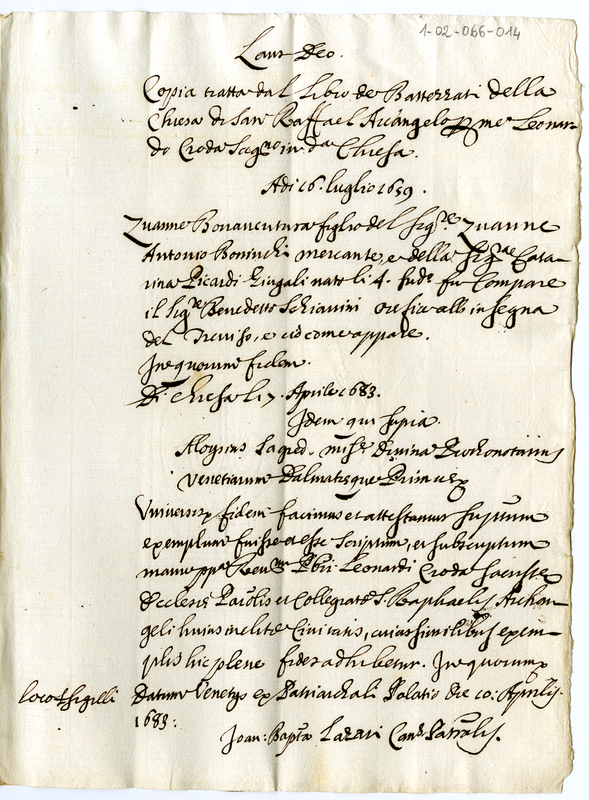 1-02-066-014
Laus Deo.
Copia tratta dal Libro de Battezzati della
Chiesa di San Raffael Arcangelo p me Leonar-
do Croda Sagno in da Chiesa.
Adi 16. luglio 1659.
Zuanne Bonauentura figlio del Sigre Zuanne
Antonio Boninchi mercante, e della Sigra Cata-
rina Ricardi Zingali nato li 4. fu Compare
il Sigre Benedetto Schiauini orefice all insegna
del Treuiso, e ciò come appare.
In quorum fidem.
Di Chiesa li 7. Aprile 1683.
Idem qui supra.
Aloysius Sagredo. Divina
Venetiarum Dalmatięque Primas
Vniuersis fidem facimus et attestamur suptum
exemplum fuisse et esse scriptum, et subscriptum
manu ppa Reuđi Pbri Leonardi Croda Sacristę
Ecclesię Parolis et Collegiatę S. Raphaelis Archan-
geli huius inclitę Ciuitatis, cuius similibus exem-
plis hic plene fides adhibetur. In quorum
loco + sigilli
Datum Venetijs ex Patriarchali Palatio die 10: Aprilis.
1683:
Joan: Bapta Lazari Canc Patralis.